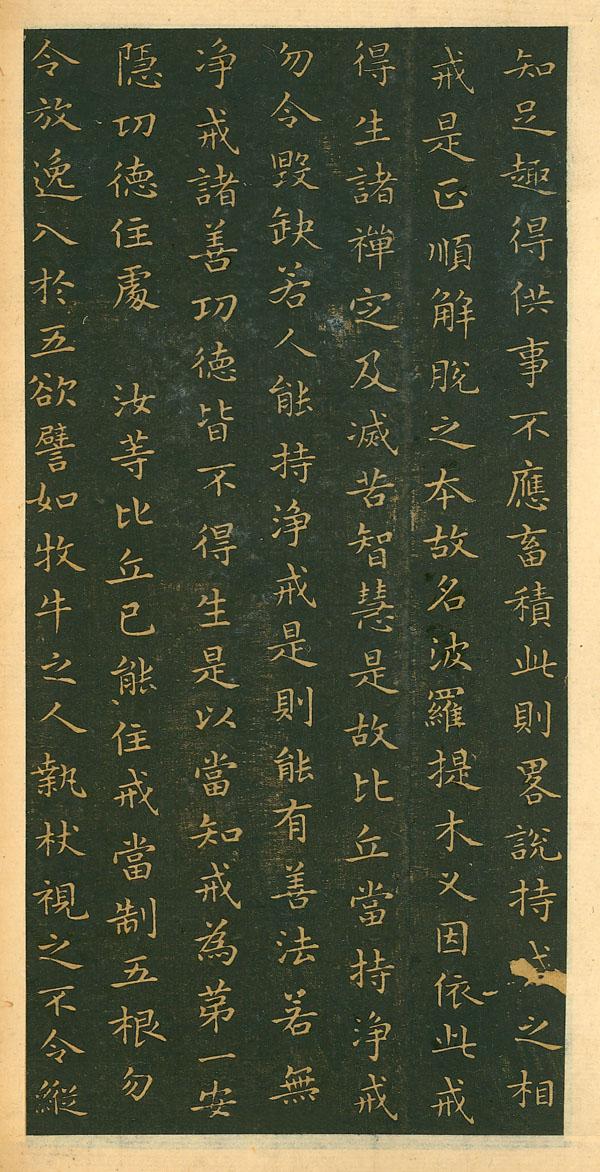 知足趣得供事不應畜積此則畧說持戒之相
戒是正順解脫之本故名波羅提木叉因依此戒
得生諸禪定及滅苦智慧是故比丘當持淨戒
勿令毀缺若人能持淨戒是則能有善法若無
淨戒諸善功德皆不得生是以當知戒為第一安
隱功德住處　汝等比丘已能住戒當制五根勿
令放逸入於五欲譬如牧牛之人執杖視之不令縱